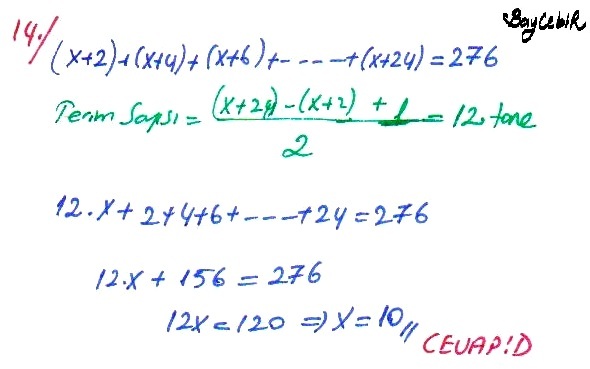 BaycebiR
14./ (x+2)+(x+4)+(x+6)+-----+(x+24)=276
Terim Sayısı = ((x+24)-(x+2))/2 + 1 = 12 tane
12.x+2+4+6+----+24=276
12.x+156=276
12x=120 ⇒ x=10//
CEVAP!D